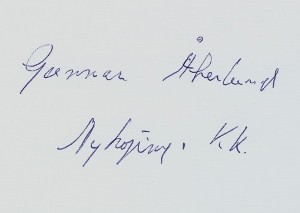 Gunnar Åkerlund
Nyköping. KK.